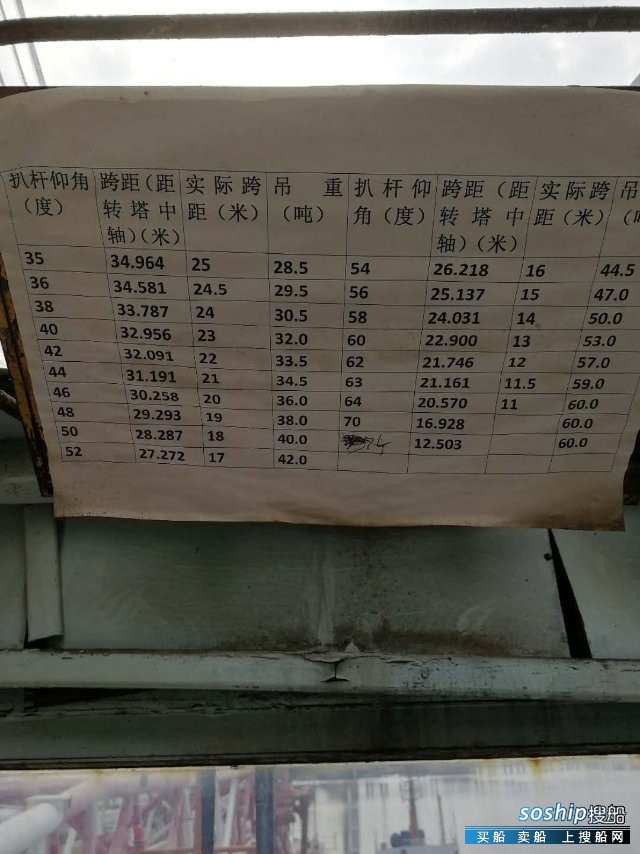 扒杆仰角（度） 跨距（距转塔中轴）（米） 实际跨距（米） 吊重（吨） 扒杆仰角（度） 跨距（距转塔中轴）（米） 实际跨距（米） 吊
35 34.964 25 28.5 54 26.218 16 44.5
36 34.581 24.5 29.5 56 25.137 15 47.0
38 33.787 24 30.5 58 24.031 14 50.0
40 32.956 23 32.0 60 22.900 13 53.0
42 32.091 22 33.5 62 21.746 12 57.0
44 31.191 21 34.5 63 21.161 11.5 59.0
46 30.258 20 36.0 64 20.570 11 60.0
48 29.293 19 38.0 70 16.928 60.0
50 28.287 18 40.0 12.503 60.0
52 27.272 17 42.0
soship搜船
买船 卖船 上搜船网